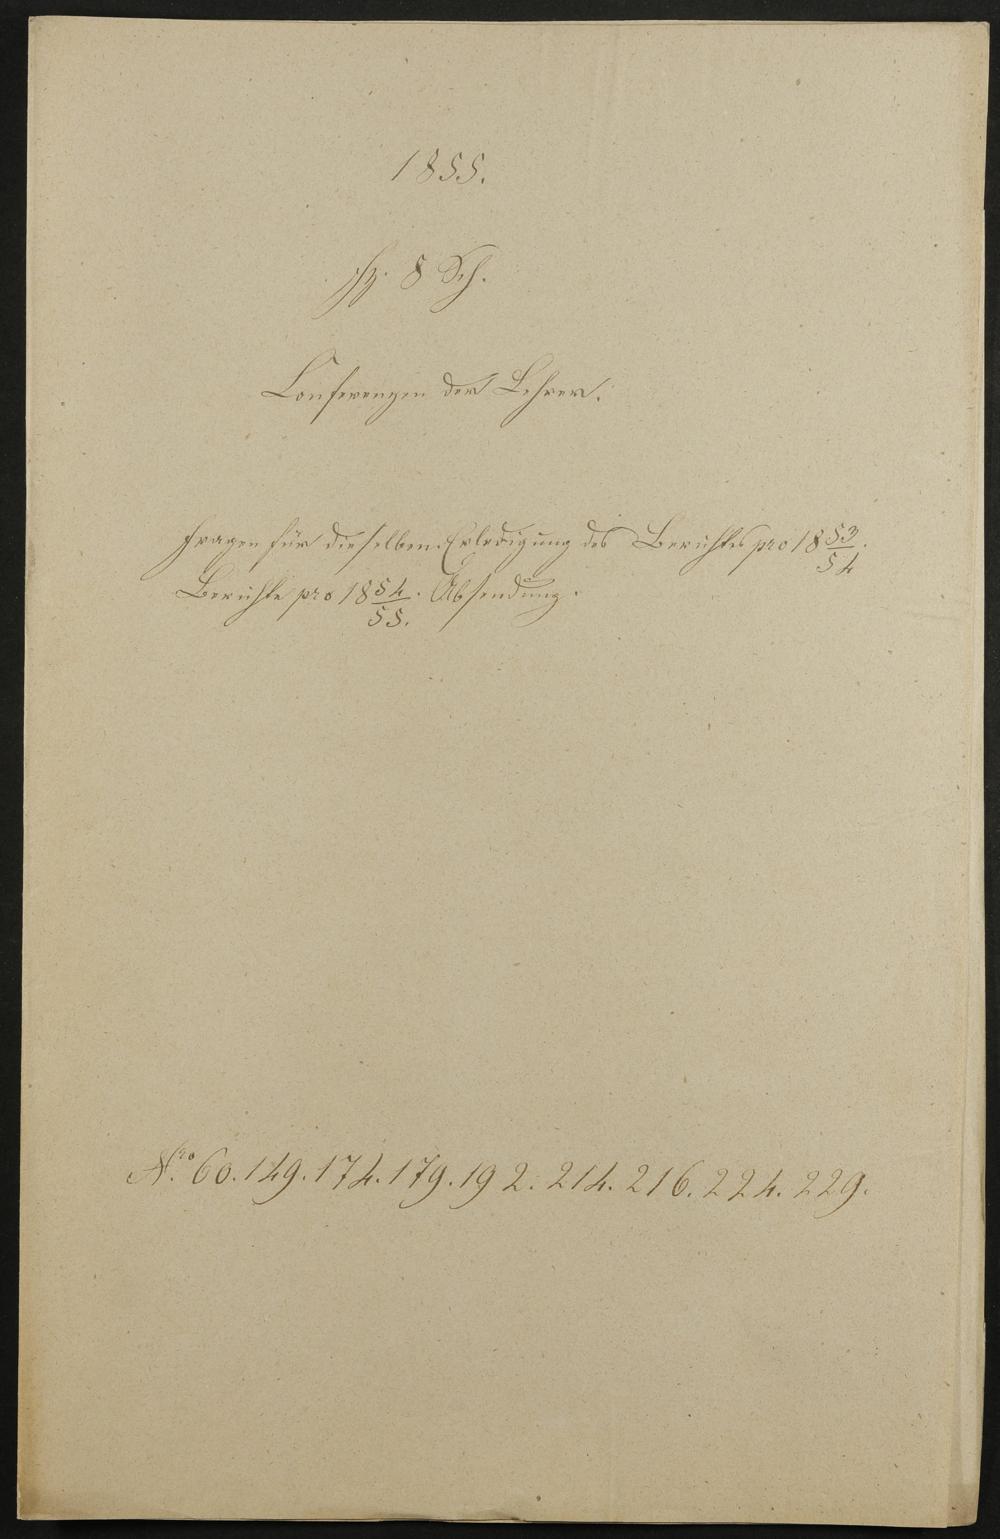 1855.
8 Sch.
Conferenzen der Lehrer.
Fragen für dieselben. Erledigung des Berichtes pro 1853/54.
Berichte pro 1854/55. Absendung.
Nro 60. 149. 174. 179. 192. 214. 216. 224. 229.